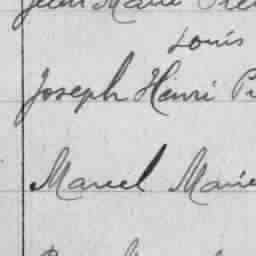 Jean Marie
Louis
Joseph Henri
Marcel Marie